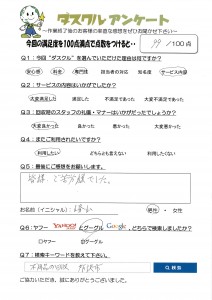 ダスクル アンケート
～作業終了後のお客様の率直な感想をぜひお聞かせ下さい～
今回の満足度を100点満点で点数をつけると・・ 99 /100点
Q1：今回“ダスクル”を選んでいただけた理由は何ですか？
安心感 料金 専門性 担当者の対応 知名度 サービス内容
Q2：サービスの内容はいかがでしたか？
大変満足した 満足した 不満足であった 大変不満足であった
Q3：回収時のスタッフの礼儀・マナーはいかがだったでしょうか？
大変良かった 良かった 悪かった 大変悪かった
Q4：またご利用されたいですか？
利用したい どちらとも言えない 利用したくない
Q5：最後にご感想をお願いします。
皆様、ご苦労様でした。
お名前（イニシャル）：
男性 ・ 女性
Q6：ヤフー YAHOO! とグーグル Google、どちらで検索しましたか？
ヤフー ②グーグル
Q7：検索キーワードを教えて下さい。
不用品の回収 検索
ご協力いただき、誠にありがとうございました。